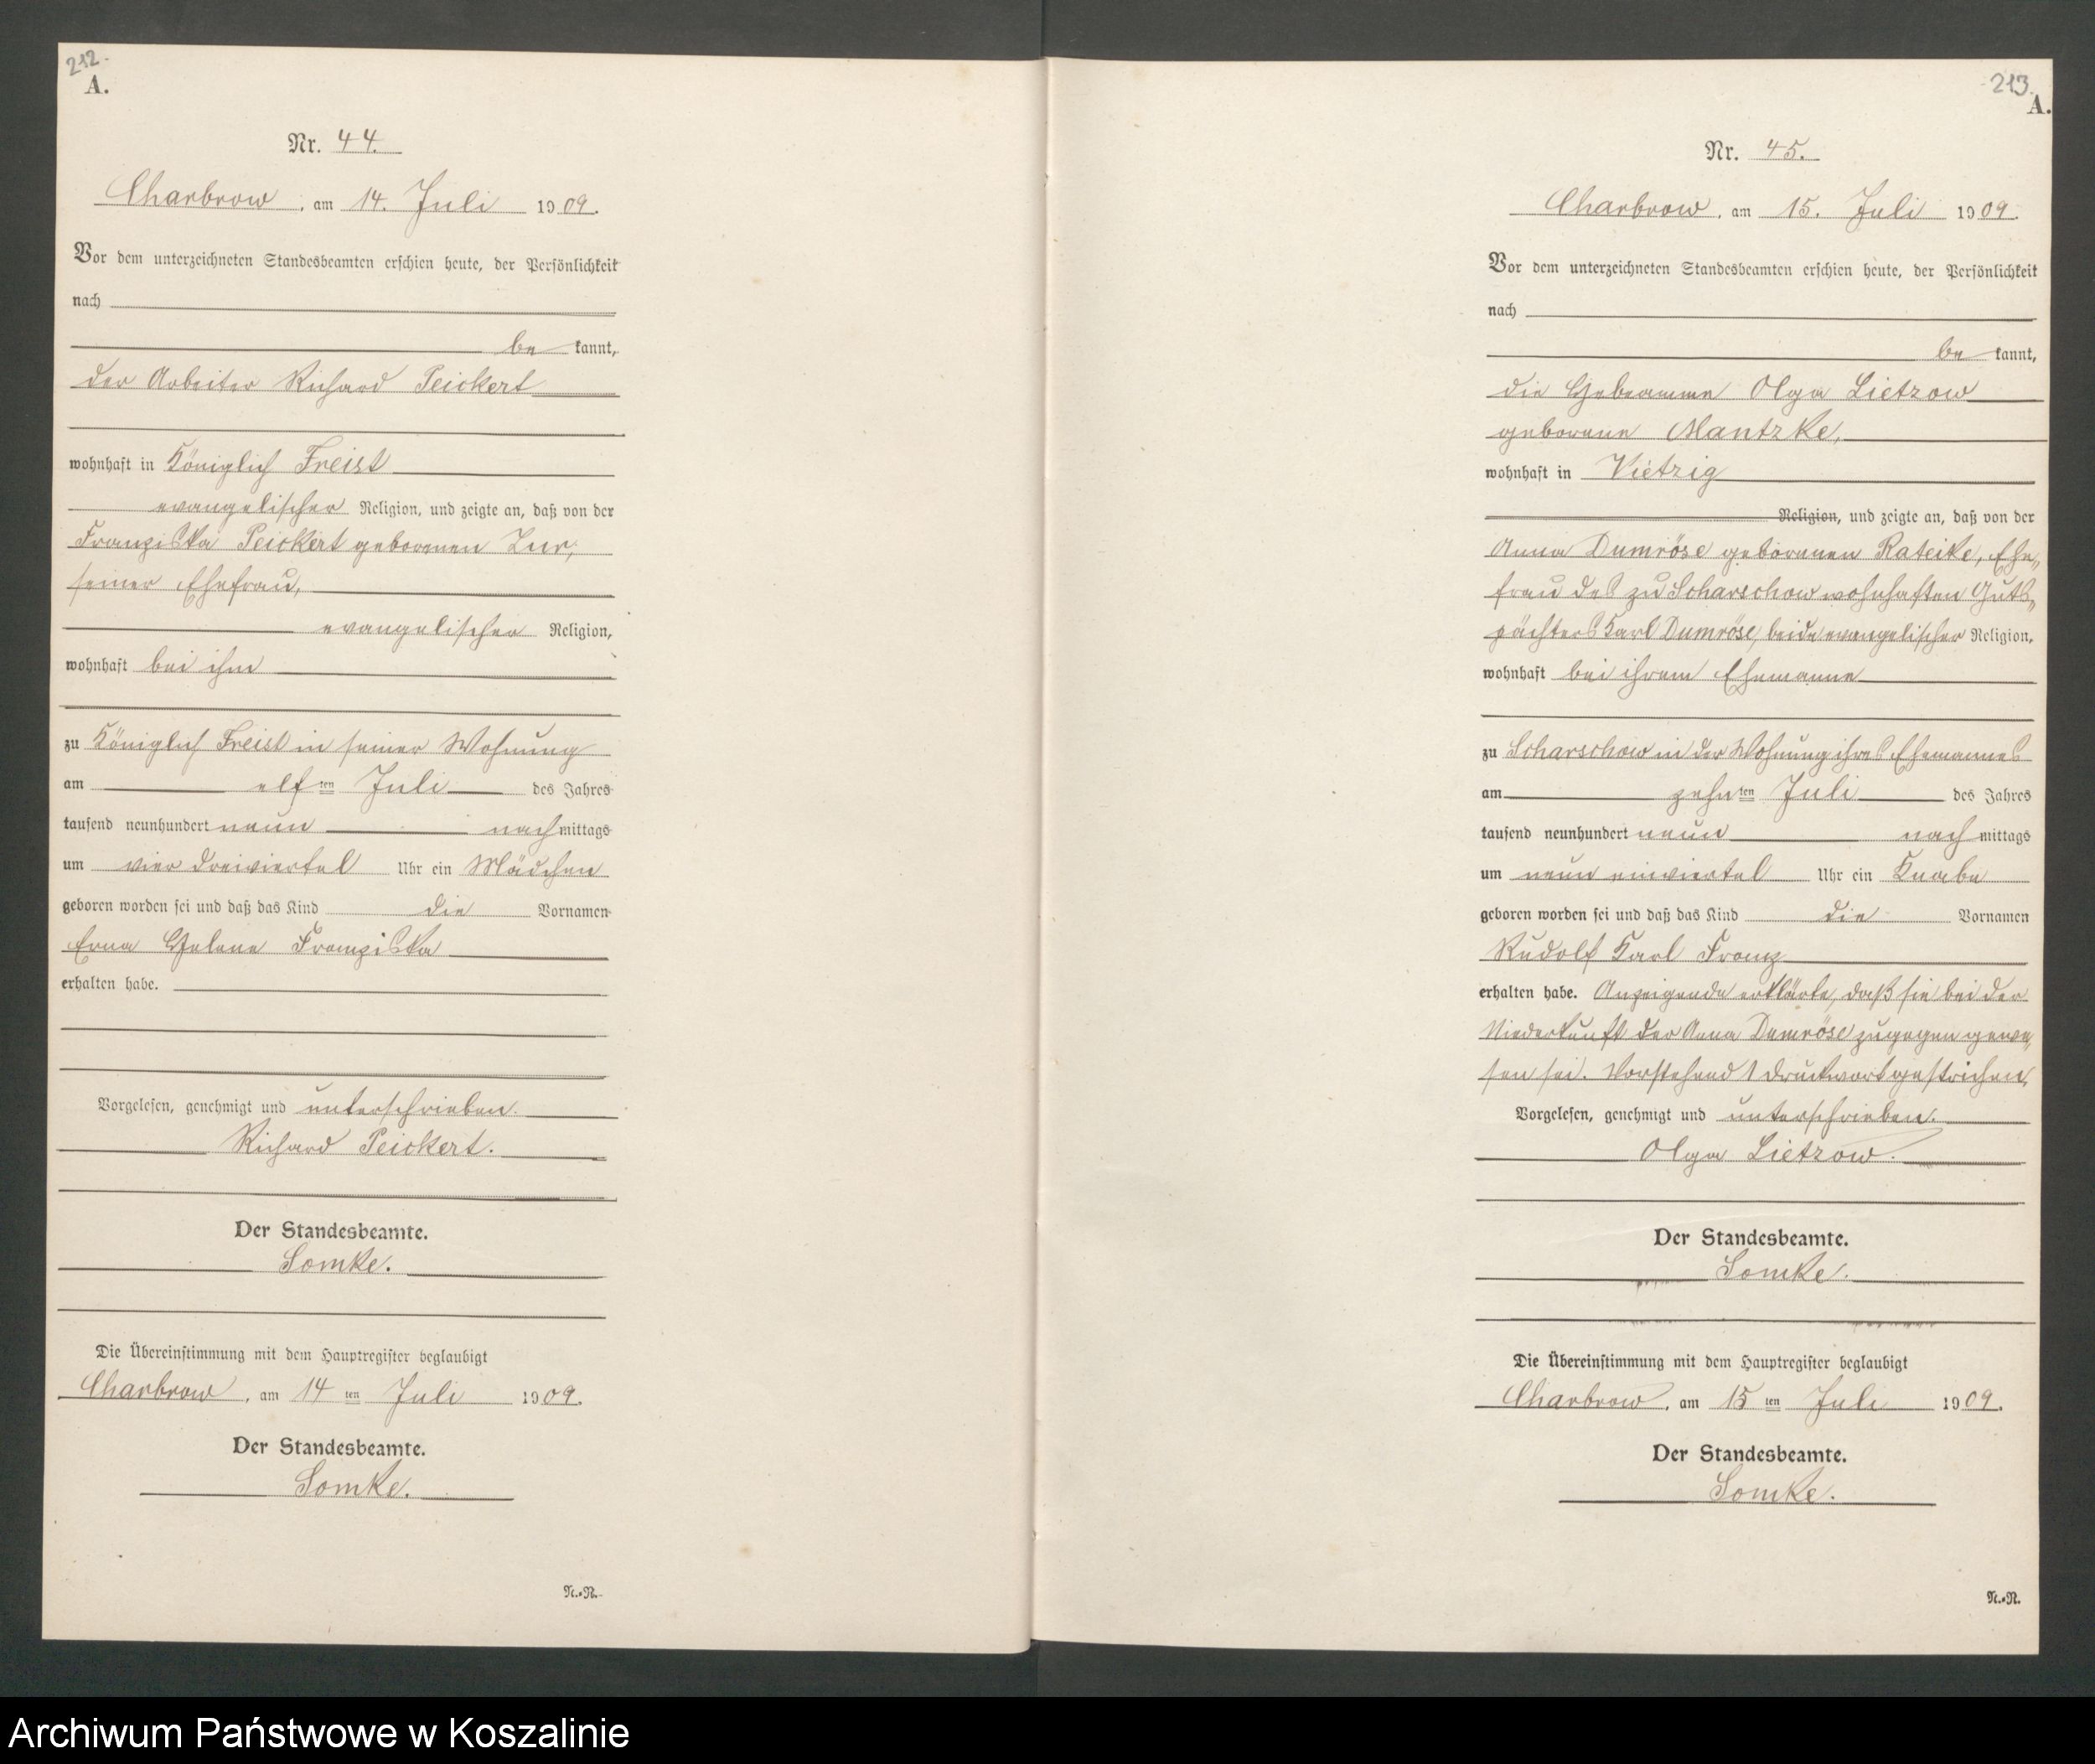 212.
A.
Nr. 44.
Charbrow, am 14. Juli 1909.
Vor dem unterzeichneten Standesbeamten erschien heute, der Persönlichkeit
nach
bekannt,
der Arbeiter Richard Peickert
wohnhaft in Königlich Freist
evangelischer Religion, und zeigte an, daß von der
Franziska Peickert geborenen
seiner Ehefrau,
evangelischer Religion,
wohnhaft bei ihm
zu Königlich Freist in seiner Wohnung
am elften Juli des Jahres
tausend neunhundert neun nachmittags
um vier dreiviertel Uhr ein Mädchen
geboren worden sei und daß das Kind die Vornamen
Erna Helene Franziska
erhalten habe.
Vorgelesen, genehmigt und unterschrieben.
Richard Peickert.
Der Standesbeamte.
Somke.
Die Übereinstimmung mit dem Hauptregister beglaubigt
Charbrow, am 14ten Juli 1909.
Der Standesbeamte.
Somke.
N.=R.
213.
A.
Nr. 45.
Charbrow, am 15. Juli 1909.
Vor dem unterzeichneten Standesbeamten erschien heute, der Persönlichkeit
nach
bekannt,
die Hebeamme Olga Lietzow
geborene Mantzke,
wohnhaft in Vietzig
Religion, und zeigte an, daß von der
Anna Dumröse geborenen Rateike, Ehe„
frau des zu Scharschow wohnhaften Guts„
pächters Karl Dumröse, beide evangelischer Religion,
wohnhaft bei ihrem Ehemanne
zu Scharschow in der Wohnung ihres Ehemannes
am zehnten Juli des Jahres
tausend neunhundert neun nachmittags
um neun einviertel Uhr ein Knabe
geboren worden sei und daß das Kind die Vornamen
Rudolf Karl Franz
erhalten habe. Anzeigende erklärte, daß sie bei der
Niederkunft der Anna Dumröse zugegen gewe„
sen sei. Vorstehend 1 Druckwort gestrichen.
Vorgelesen, genehmigt und unterschrieben.
Olga Lietzow.
Der Standesbeamte.
Somke.
Die Übereinstimmung mit dem Hauptregister beglaubigt
Charbrow, am 15ten Juli 1909.
Der Standesbeamte.
Somke.
N.=R.
Archiwum Państwowe w Koszalinie